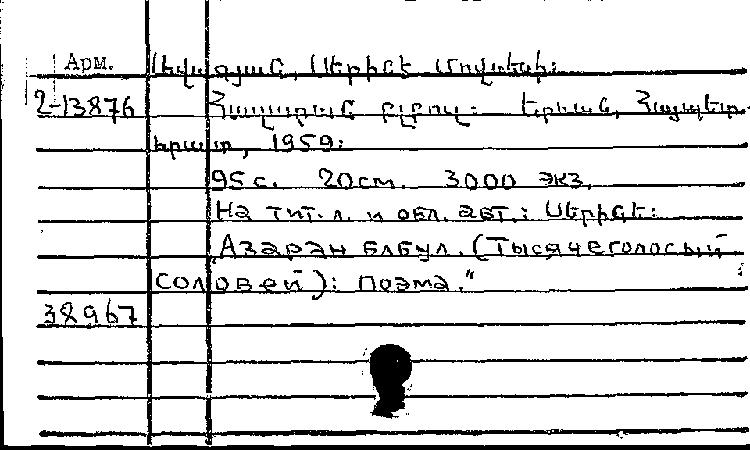 Арм.
Ավագյան, Սերինե Մովսեսի:
2-13876 Հազարան բլբուլ: Երևան, Հայպետ-
հրատ, 1959:
95 с. 20 см. 3000 экз.
На тит. л. и обл. авт.: Սերինե:
"Азаран блбул. (Тысячеголосый
соловей): поэма."
38967